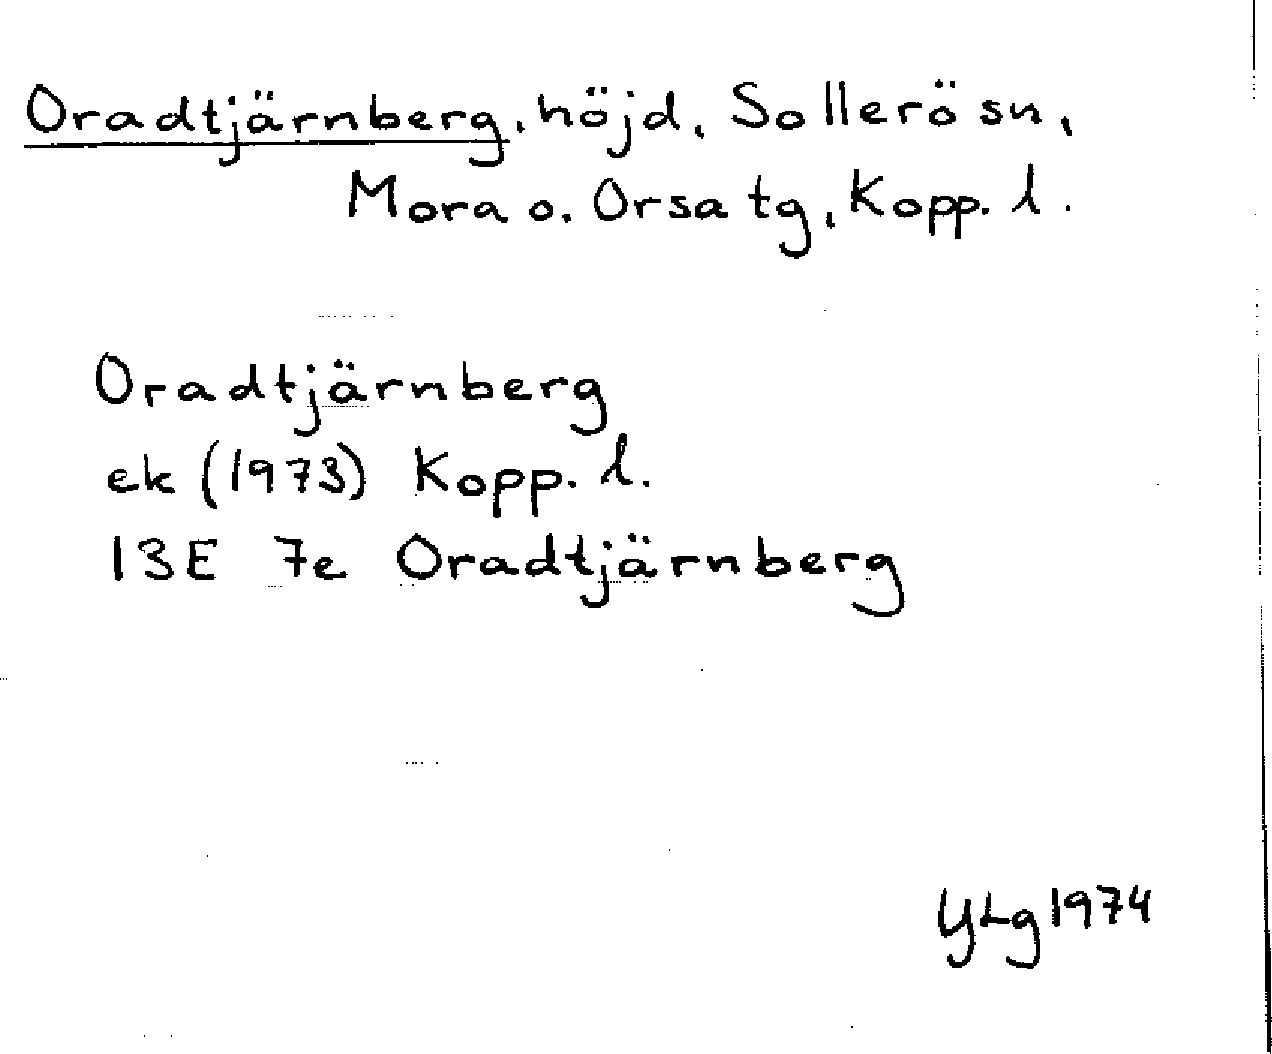 Oradtjärnberg, höjd, Sollerö sn,
Mora o. Orsa tg, Kopp. l.
Oradtjärnberg
ek (1973) Kopp. l.
13E 7e Oradtjärnberg
YLg 1974